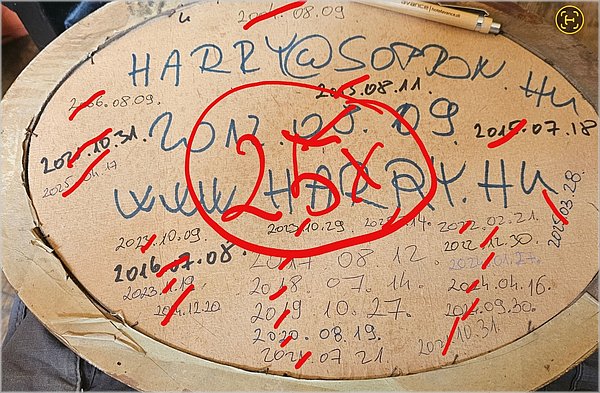 avance
2004.08.09
HARRY@SOPRON.HU
2006.08.09.
2015.08.11.
2012.08.09
2015.07.18
2021.10.31.
2025.04.17
25x
WWW.HARRY.HU
2025.03.28.
2023.10.29
2022.02.21.
2023.10.09.
2022.12.30.
2016.07.08.
2017 08 12
2024.01.27.
2023.11.19
2018 07. 14.
2024.04.16.
2024.12.20
2019 10. 27.
2024.09.30.
2020. 08.19.
2021.07 21.
10.31.